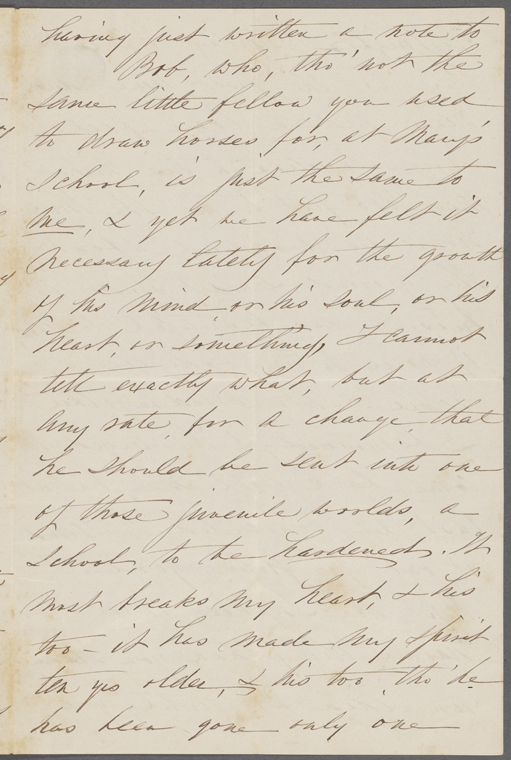 having just written a note to
Bob, who, tho' not the
same little fellow you used
to draw horses for, at Mary's
School, is just the same to
me, & yet we have felt it
necessary lately for the growth
of his mind, or his soul, or his
heart, or something, I cannot
tell exactly what, but at
any rate, for a change, that
he should be sent into one
of those juvenile worlds, a
School, to be hardened. It
most breaks my heart, & his
too – it has made my spirit
ten yrs older, & his too, tho' he
has been gone only one